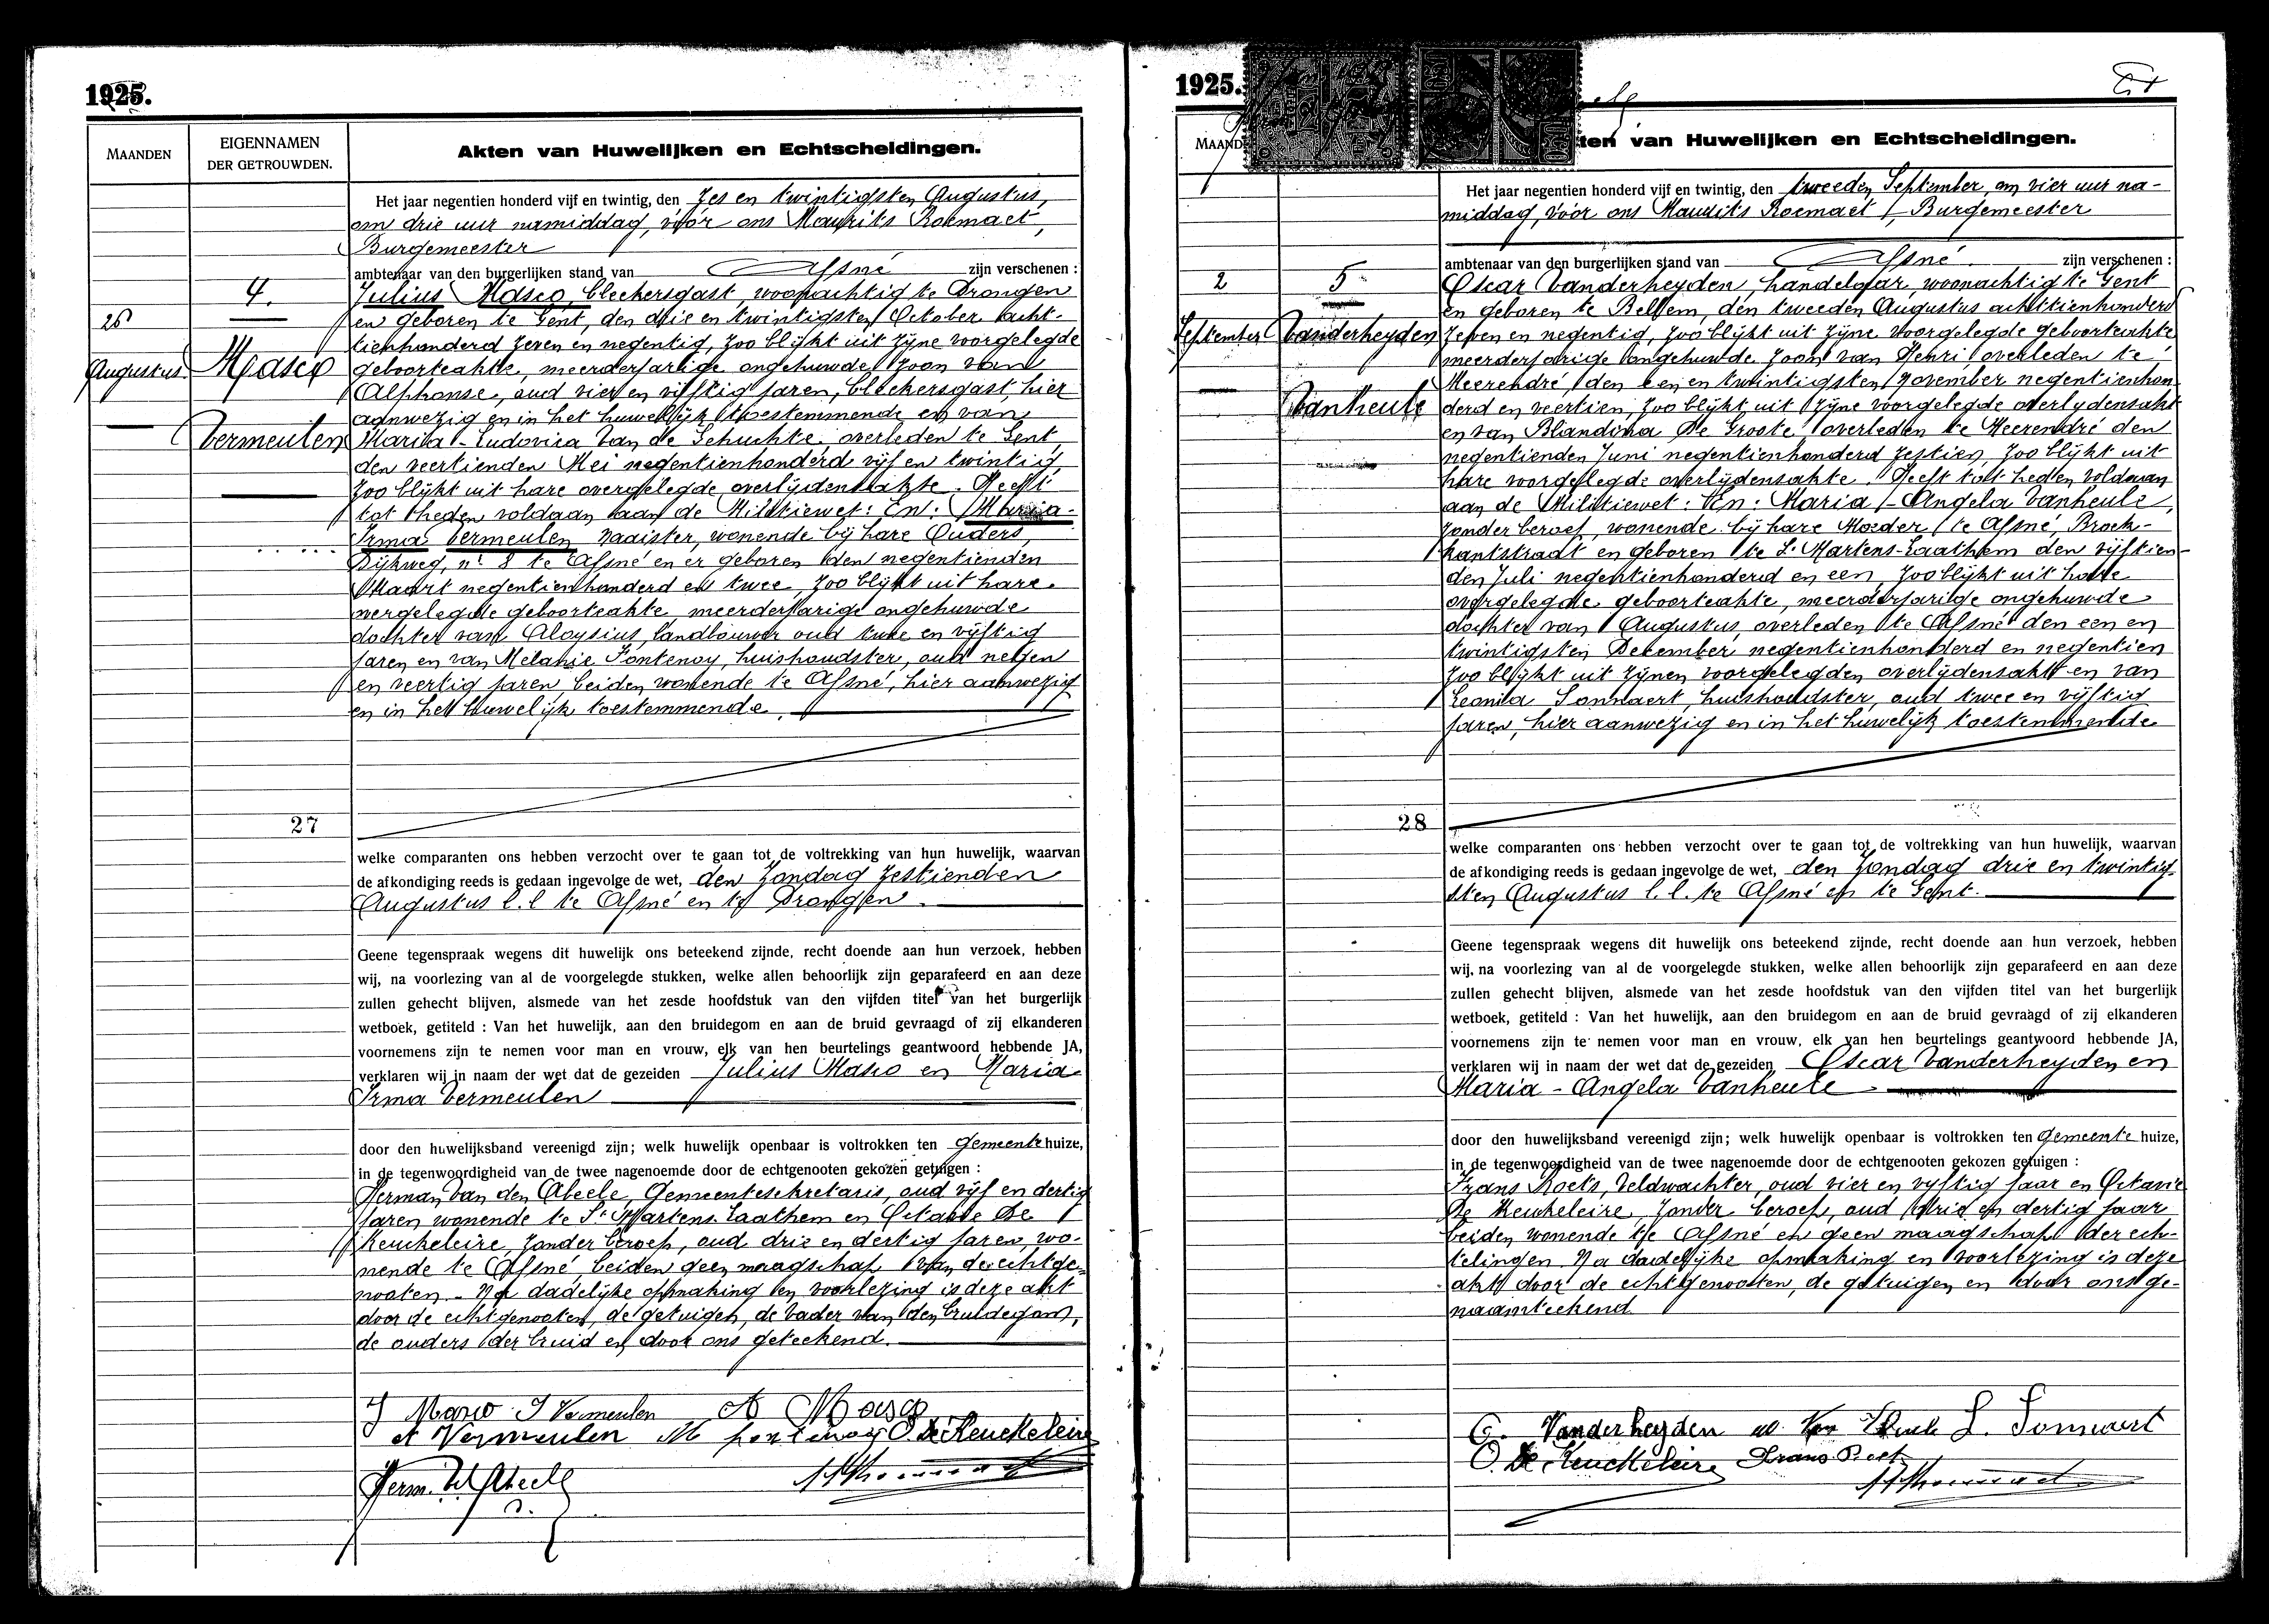 1925.
MAANDEN
EIGENNAMEN
DER GETROUWDEN.
Akten van Huwelijken en Echtscheidingen.
Het jaar negentien honderd vijf en twintig, den zes en twintigsten Augustus,
om drie uur namiddag, vóór ons Maurits Roemaet,
Burgemeester
ambtenaar van den burgerlijken stand van Afsné zijn verschenen :
4.
26
Augustus
Masco
Vermeulen
Julius Masco, bleekersgast, woonachtig te Drongen
en geboren te Gent, den drie en twintigsten October acht-
tienhonderd zeven en negentig, zoo blijkt uit zijne voorgelegde
geboorteakte, meerderjarige ongehuwde zoon van
Alphonse, oud vier en vijftig jaren, bleekersgast, hier
aanwezig en in het huwelijk toestemmende en van
Maria-Ludovica Van de Gehuchte overleden te Gent,
den veertienden Mei negentienhonderd vijf en twintig,
zoo blijkt uit hare overgelegde overlijdensakte. Heeft
tot heden voldaan aan de Militiewet: En: Maria-
Irma Vermeulen naaister, wonende bij hare Ouders,
Dijkweg, nr 8 te Afsné en er geboren den negentienden
Maart negentienhonderd en twee, zoo blijkt uit hare
overgelegde geboorteakte, meerderjarige ongehuwde
dochter van Aloysius, landbouwer oud twee en vijftig
jaren en van Melanie Fontenoy, huishoudster, oud negen
en veertig jaren, beiden wonende te Afsné, hier aanwezig
en in het huwelijk toestemmende.
27
welke comparanten ons hebben verzocht over te gaan tot de voltrekking van hun huwelijk, waarvan
de afkondiging reeds is gedaan ingevolge de wet, den Zondag zestienden
Augustus l.l te Afsné en te Drongen.
Geene tegenspraak wegens dit huwelijk ons beteekend zijnde, recht doende aan hun verzoek, hebben
wij, na voorlezing van al de voorgelegde stukken, welke allen behoorlijk zijn geparafeerd en aan deze
zullen gehecht blijven, alsmede van het zesde hoofdstuk van den vijfden titel van het burgerlijk
wetboek, getiteld : Van het huwelijk, aan den bruidegom en aan de bruid gevraagd of zij elkanderen
voornemens zijn te nemen voor man en vrouw, elk van hen beurtelings geantwoord hebbende JA,
verklaren wij in naam der wet dat de gezeiden Julius Masco en Maria
Irma Vermeulen
door den huwelijksband vereenigd zijn; welk huwelijk openbaar is voltrokken ten Gemeente huize,
in de tegenwoordigheid van de twee nagenoemde door de echtgenooten gekozen getuigen :
Herman Van den Abeele, Gemeentesekretaris, oud vijf en dertig
jaren wonende te St Martens-Laathem en Octavie De
Keuckeleire, zonder beroep, oud drie en dertig jaren, wo-
nende te Afsné, beiden geen maagschap van de echtge-
nooten. - Na dadelijke opmaking en voorlezing is deze akt
door de echtgenooten, de getuigen, de vader van den bruidegom,
de ouders der bruid en door ons geteekend.
J Masco I Vermeulen A Masco
A Vermeulen M fontenoy O De Keuckeleire
Herm. Vd Abeele
1925.
MAAND
ten van Huwelijken en Echtscheidingen.
Het jaar negentien honderd vijf en twintig, den tweeden September, om vier uur na-
middag, vóór ons Maurits Roemaet, Burgemeester
ambtenaar van den burgerlijken stand van Afsné zijn verschenen :
2
September
5
Vanderheyden
Vanheule
Oscar Vanderheyden, handelaar, woonachtig te Gent
en geboren te Bellem, den tweeden Augustus achttienhonderd
zeven en negentig, zoo blijkt uit zijne voorgelegde geboorteakte
meerderjarige ongehuwde zoon van Henri overleden te
Meerendré, den een en twintigsten November negentienhon
derd en veertien, zoo blijkt uit zijne voorgelegde overlydensakt
en van Blandina De Groote overleden te Meerendré den
negentienden Juni negentienhonderd zestien, zoo blijkt uit
hare voorgelegde overlijdensakte. Heeft tot heden voldaan
aan de Militiewet: En: Maria-Angela Vanheule,
zonder beroep, wonende bij hare Moeder te Afsné, Broek-
kantstraat en geboren te St Martens-Laathem den vijftien-
den Juli negentienhonderd en een, zoo blijkt uit hare
overgelegde geboorteakte, meerderjarige ongehuwde
dochter van Augustus, overleden te Afsné den een en
twintigsten December negentienhonderd en negentien
zoo blijkt uit zijnen voorgelegden overlijdensakt en van
Leonia Sonnaert, huishoudster, oud twee en vijftig
jaren, hier aanwezig en in het huwelijk toestemmende
28
welke comparanten ons hebben verzocht over te gaan tot de voltrekking van hun huwelijk, waarvan
de afkondiging reeds is gedaan ingevolge de wet, den Zondag drie en twintig-
sten Augustus l.l. te Afsné en te Gent.
Geene tegenspraak wegens dit huwelijk ons beteekend zijnde, recht doende aan hun verzoek, hebben
wij, na voorlezing van al de voorgelegde stukken, welke allen behoorlijk zijn geparafeerd en aan deze
zullen gehecht blijven, alsmede van het zesde hoofdstuk van den vijfden titel van het burgerlijk
wetboek, getiteld : Van het huwelijk, aan den bruidegom en aan de bruid gevraagd of zij elkanderen
voornemens zijn te nemen voor man en vrouw, elk van hen beurtelings geantwoord hebbende JA,
verklaren wij in naam der wet dat de gezeiden Oscar Vanderheyden en
Maria - Angela Vanheule
door den huwelijksband vereenigd zijn; welk huwelijk openbaar is voltrokken ten Gemeente huize,
in de tegenwoordigheid van de twee nagenoemde door de echtgenooten gekozen getuigen :
Frans Roets, Veldwachter, oud vier en vyftig jaar en Octavie
De Keuckeleire, zonder beroep, oud drie en dertig jaar
beiden wonende te Afsné en geen maagschap der ech-
telingen. Na dadelijke opmaking en voorlezing is deze
akt door de echtgenooten, de getuigen en door ons ge-
naamteekend
O. Vanderheyden L. Sonnaert
O. De Keuckeleire Frans Roets